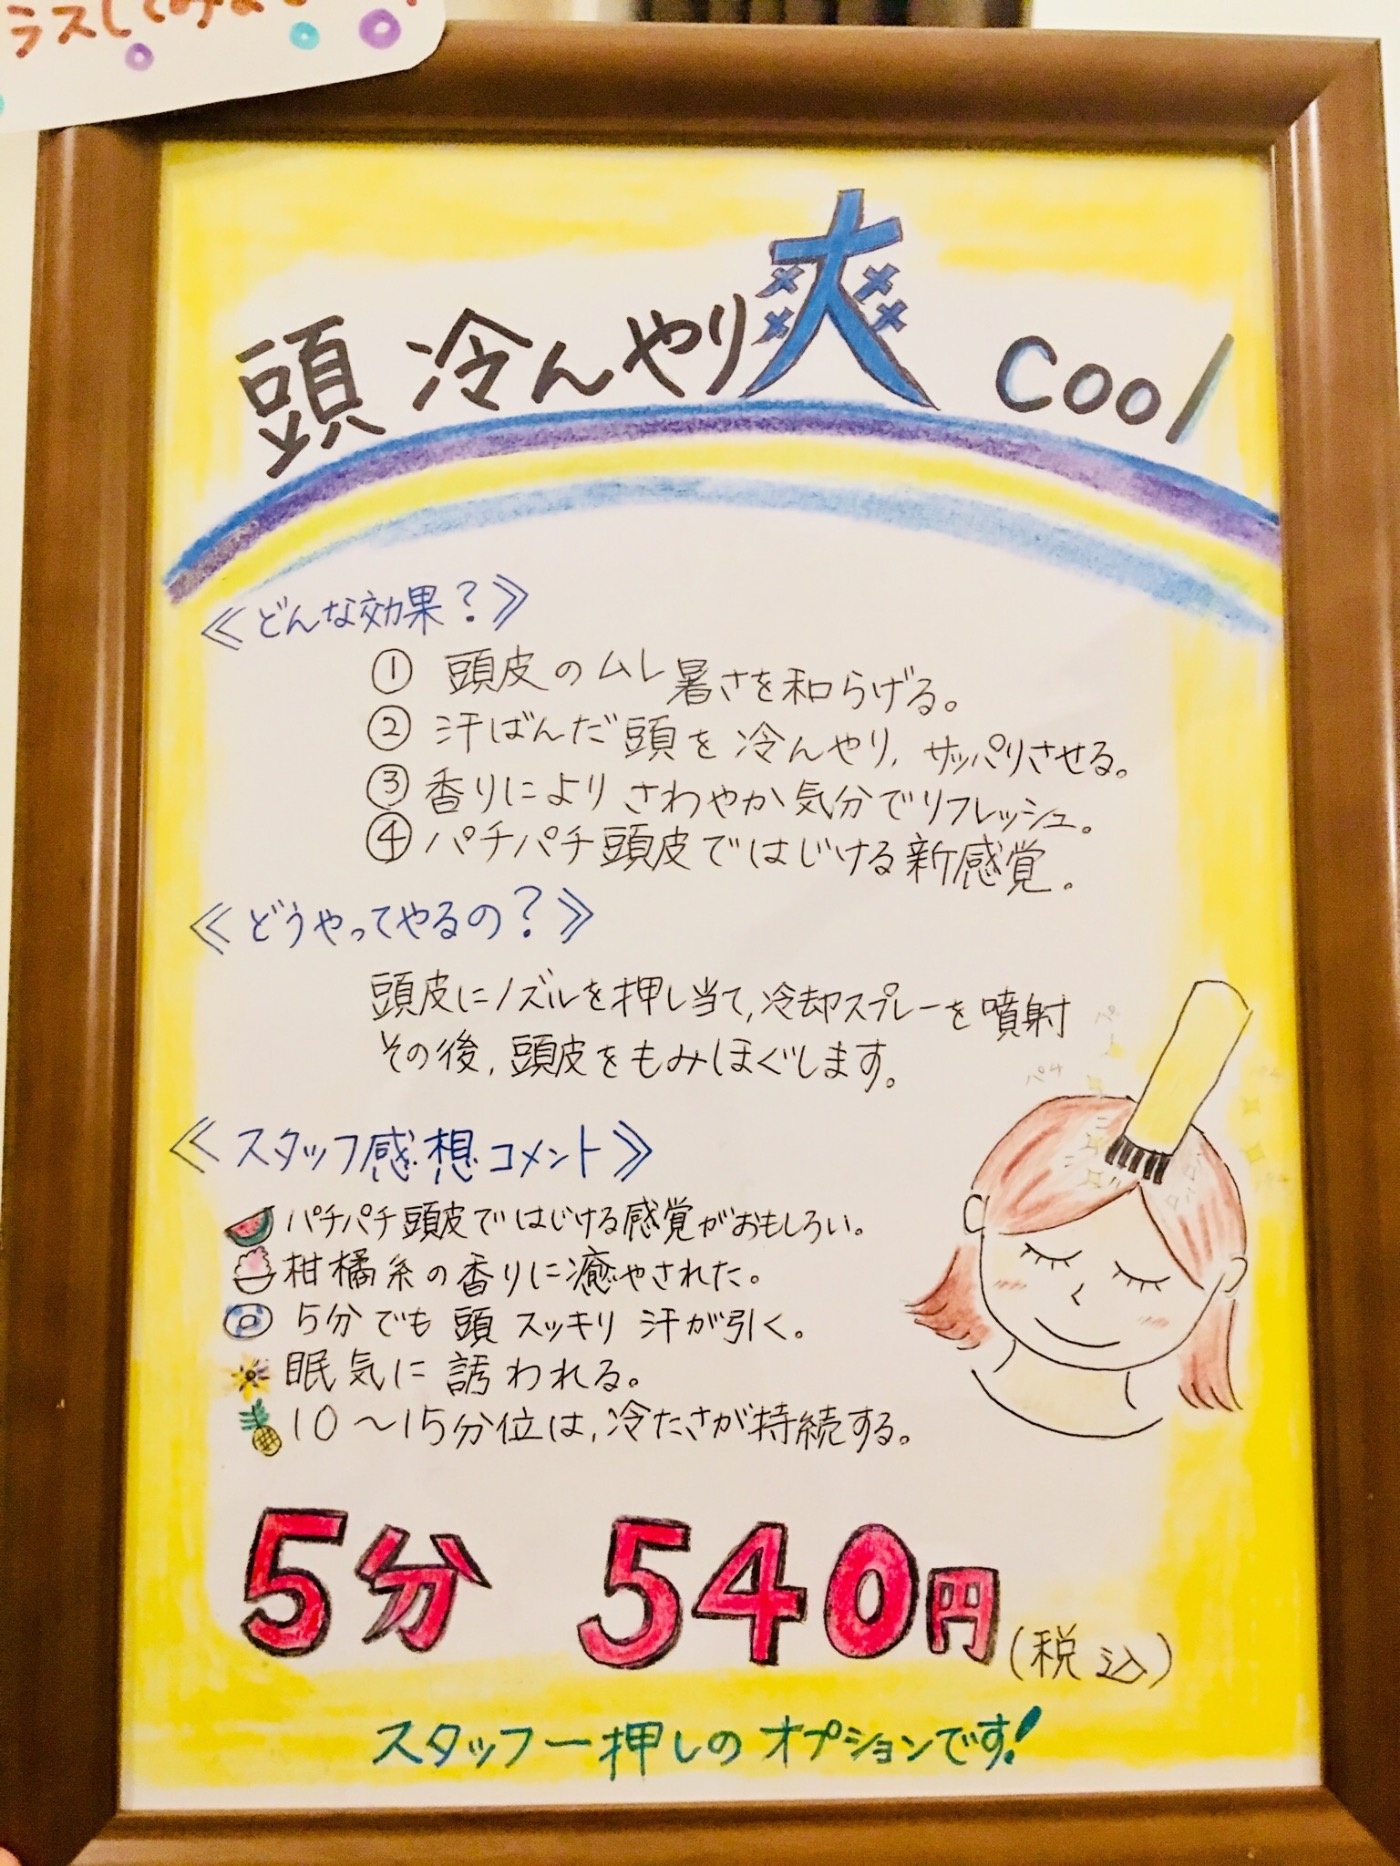 ラスしてみ
頭 冷んやり爽 Cool
≪どんな効果？≫
① 頭皮のムレ暑さを和らげる。
② 汗ばんだ頭を冷んやり、サッパリさせる。
③ 香りによりさわやか気分でリフレッシュ。
④ パチパチ頭皮ではじける新感覚。
≪どうやってやるの？≫
頭皮にノズルを押し当て、冷却スプレーを噴射
その後、頭皮をもみほぐします。
≪スタッフ感想コメント≫
パチパチ頭皮ではじける感覚がおもしろい。
柑橘系の香りに癒やされた。
5分でも 頭 スッキリ 汗が引く。
眠気に誘われる。
10〜15分位は、冷たさが持続する。
5分 540円(税込)
スタッフ一押しのオプションです!